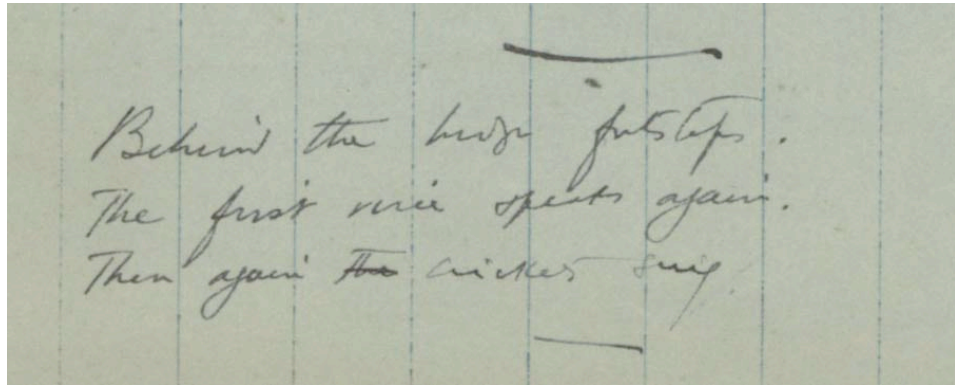 Behind the hedge footsteps.
The first voice speaks again.
Then again the crickets sing.